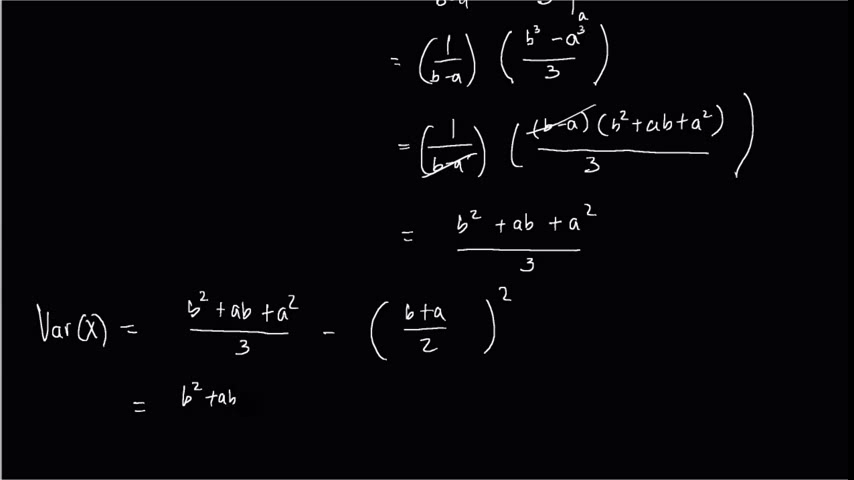 = (1/(b-a)) ((b³ - a³)/3)
= (1/(b-a)) ((b-a)(b² + ab + a²)/3)
= (b² + ab + a²)/3
Var(X) = (b² + ab + a²)/3 - ((b+a)/2)²
= b² + ab